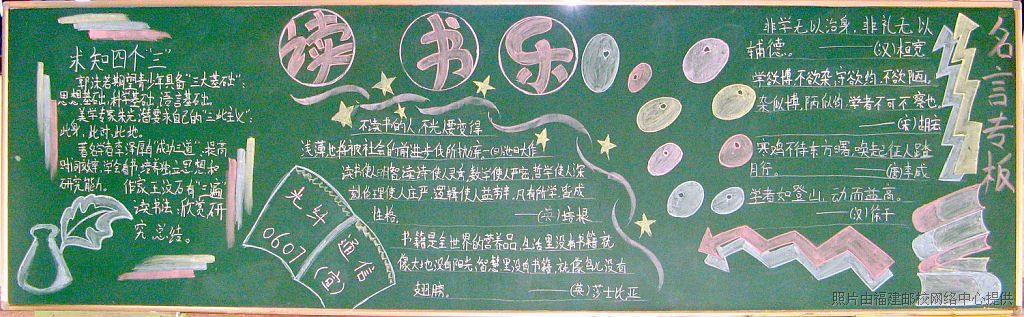 读书乐
求知四个“三”
郭沫若期望青少年具备“三大基础”:
思想基础,科学基础,语言基础。
美学专家朱光潜要求自己的“三此主义”:
此身,此时,此地。
著名学者李泽厚的“成功三道”,提高
时间效率,学会读书,培养独立思想和
研究能力。 作家王汶石有“三遍”
读书法:欣赏研
究总结。
光纤
0607
通信
(宣)
不读书的人,不光腰变得
浅薄也将被社会的前进步伐所抛弃—
读书使人明智,读诗使人灵秀,数学使人严密,哲学使人深
刻,伦理使人庄严,逻辑使人善辩,凡有所学,皆成
性格。 ——(英)培根
书籍是全世界的营养品,生活里没有书籍,就
像大地没有阳光,智慧里没有书籍,就像鸟儿没有
翅膀。 ——(英)莎士比亚
名言专板
非学无以治身,非礼无以
辅德。 ——(汉)桓宽
学欲博,不欲杂,守欲约,不欲陋。
杂似博,陋似约,学者不可不察也。
——(宋)胡宏
寒鸡不待东方曙,唤起征人踏
月行。
学者如登山,动而益高。
——(汉)徐干
照片由福建邮校网络中心提供